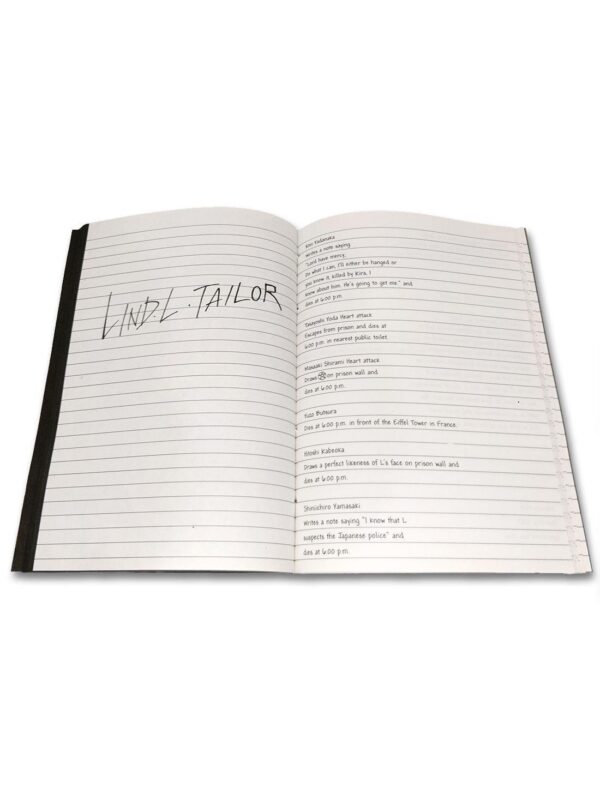 LIND.L.TAILOR
Kon Tadanaka
Writes a note saying
"Lord have mercy.
Do what I can, I'll either be hanged or
you know it, killed by Kira. I
know about him. He's going to get me." and
dies at 6:00 p.m.
Yoda Heart attack
Escapes from prison and dies at
6:00 p.m. in nearest public toilet
Masaaki Shirami Heart attack
Draws on prison wall and
dies at 6:00 p.m.
Yuzo Butsura
Dies at 6:00 p.m. in front of the Eiffel Tower in France.
Hitoshi Kabeoka
Draws a perfect likeness of L's face on prison wall and
dies at 6:00 p.m.
Shiniichiro Yamasaki
Writes a note saying "I know that L
suspects the Japanese police" and
dies at 6:00 p.m.